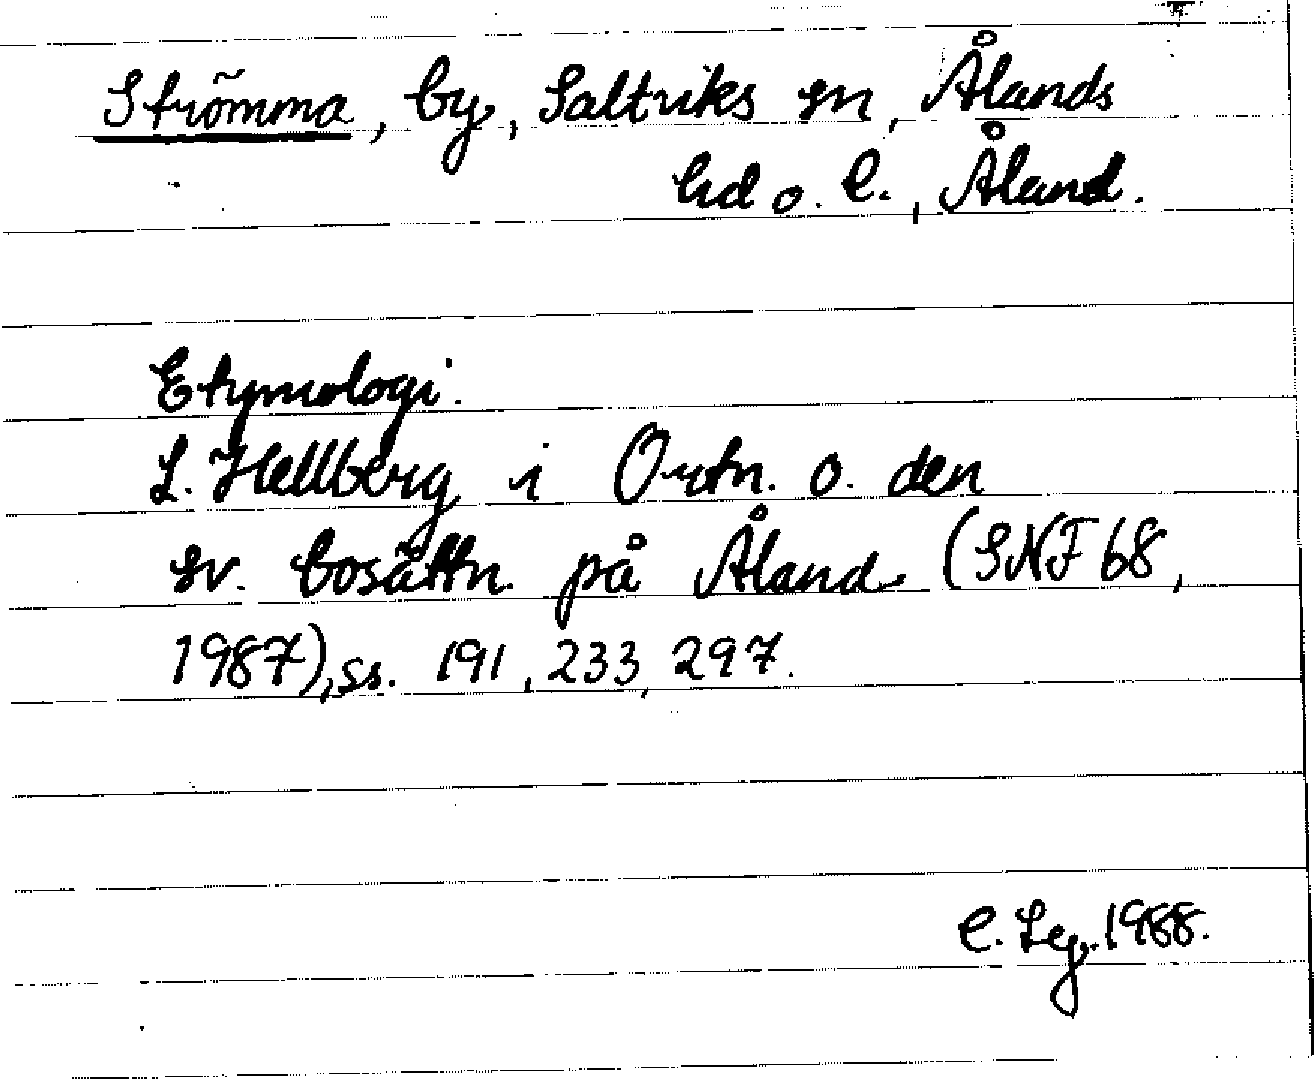 Strömma, by, Saltviks sn, Ålands
hd o. l., Åland.
Etymologi.
L. Hellberg i Ortn. o. den
sv. bosättn. på Åland (SNF 68,
1987), ss. 191, 233, 297.
C. Leg. 1988.